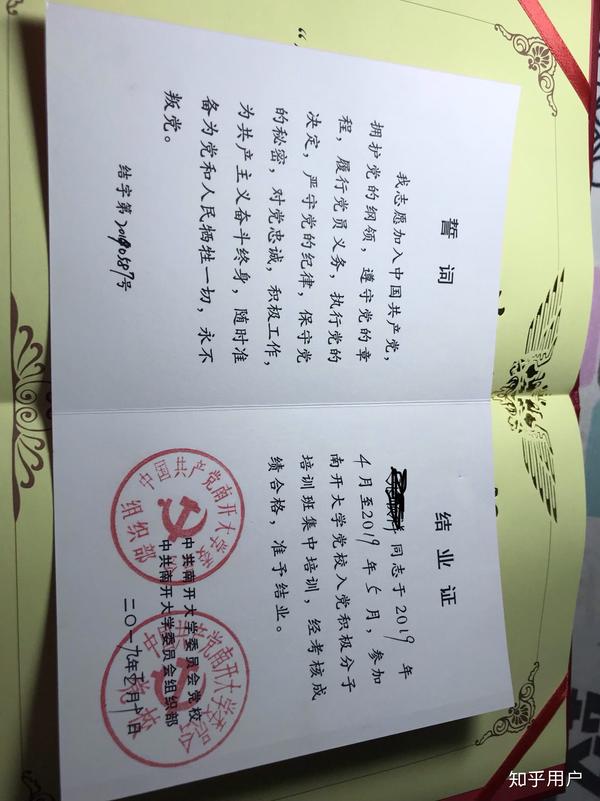 誓词
我志愿加入中国共产党，
拥护党的纲领，遵守党的章
程，履行党员义务，执行党的
决定，严守党的纪律，保守党
的秘密，对党忠诚，积极工作，
为共产主义奋斗终身，随时准
备为党和人民牺牲一切，永不
叛党。
结字第 号
结业证
同志于2019年
4月至2019年5月，参加
南开大学党校入党积极分子
培训班集中培训，经考核成
绩合格，准予结业。
中共南开大学委员会党校
中共南开大学委员会组织部
二〇一九年 月 日
中国共产党南开大学委
组织部
中国共产党南开大学委
党校
知乎用户